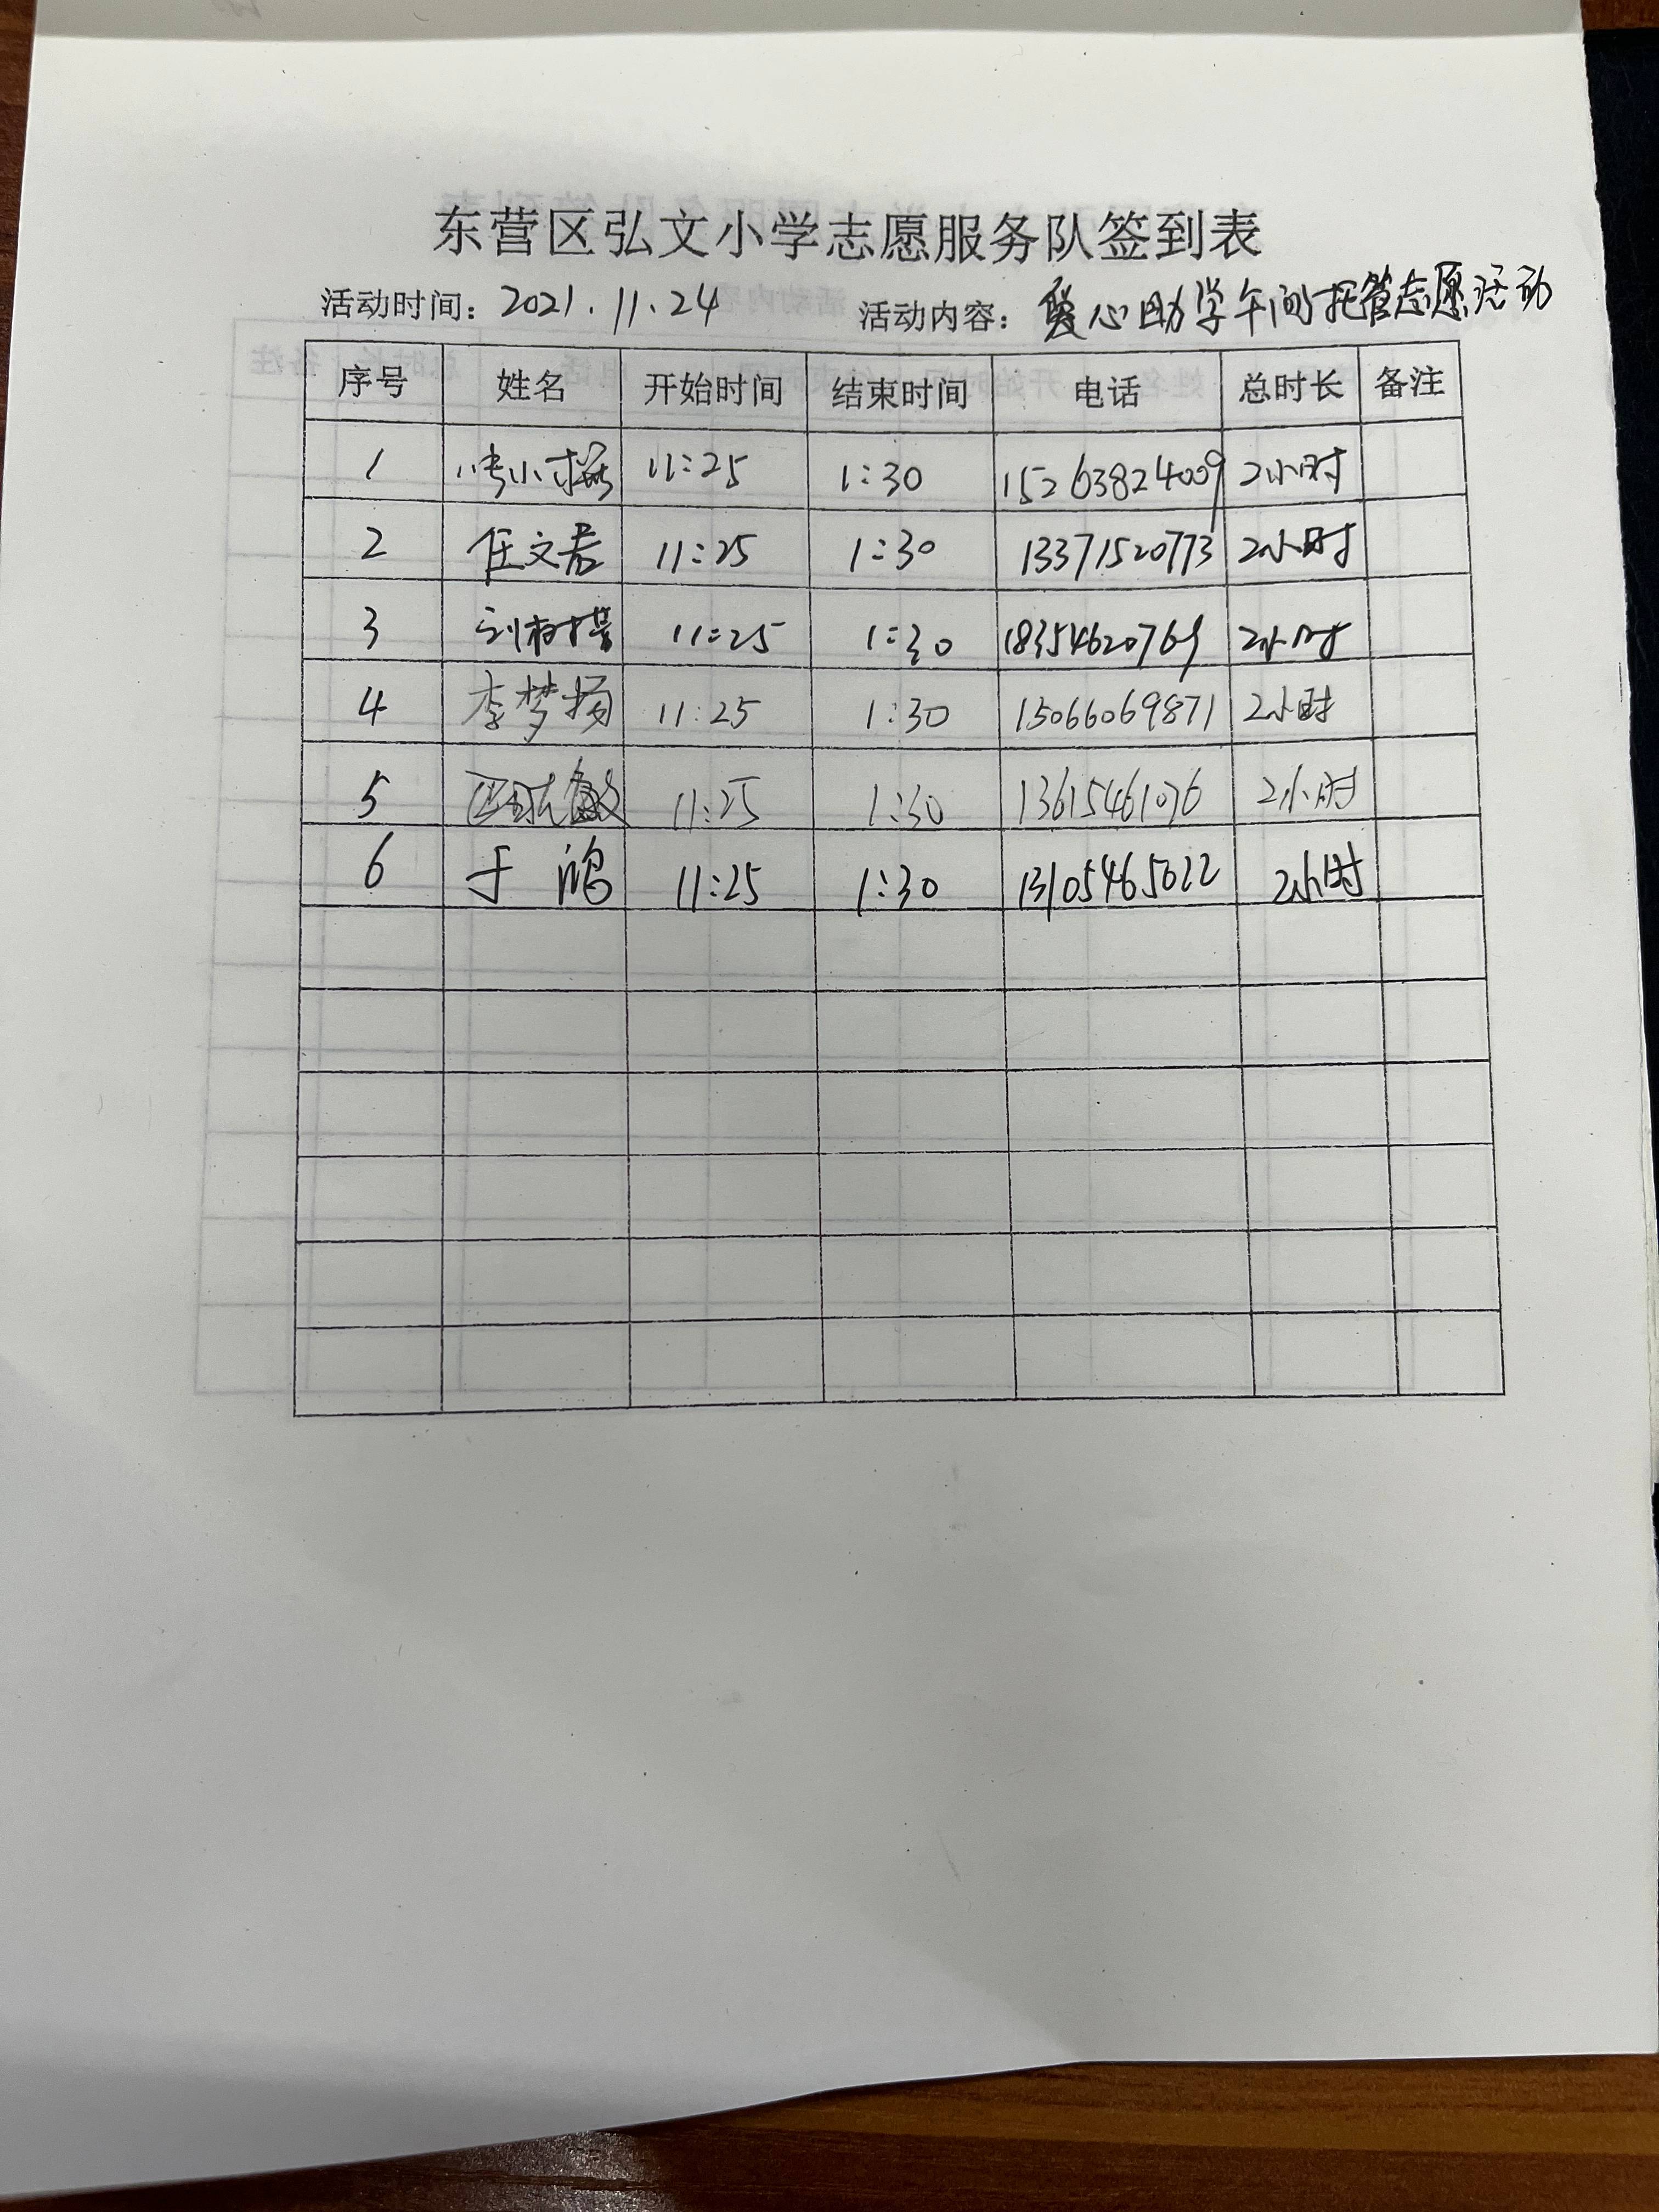 东营区弘文小学志愿服务队签到表
活动时间：2021.11.24 活动内容：爱心助学午间托管志愿活动
序号 姓名 开始时间 结束时间 电话 总时长 备注
1 11:25 1:30 15263824009 2小时
2 任文君 11:25 1:30 13371520773 2小时
3 11:25 1:30 18354620769 2小时
4 李梦扬 11:25 1:30 15066069871 2小时
5 11:25 1:30 13615461076 2小时
6 于鸿 11:25 1:30 13105465022 2小时